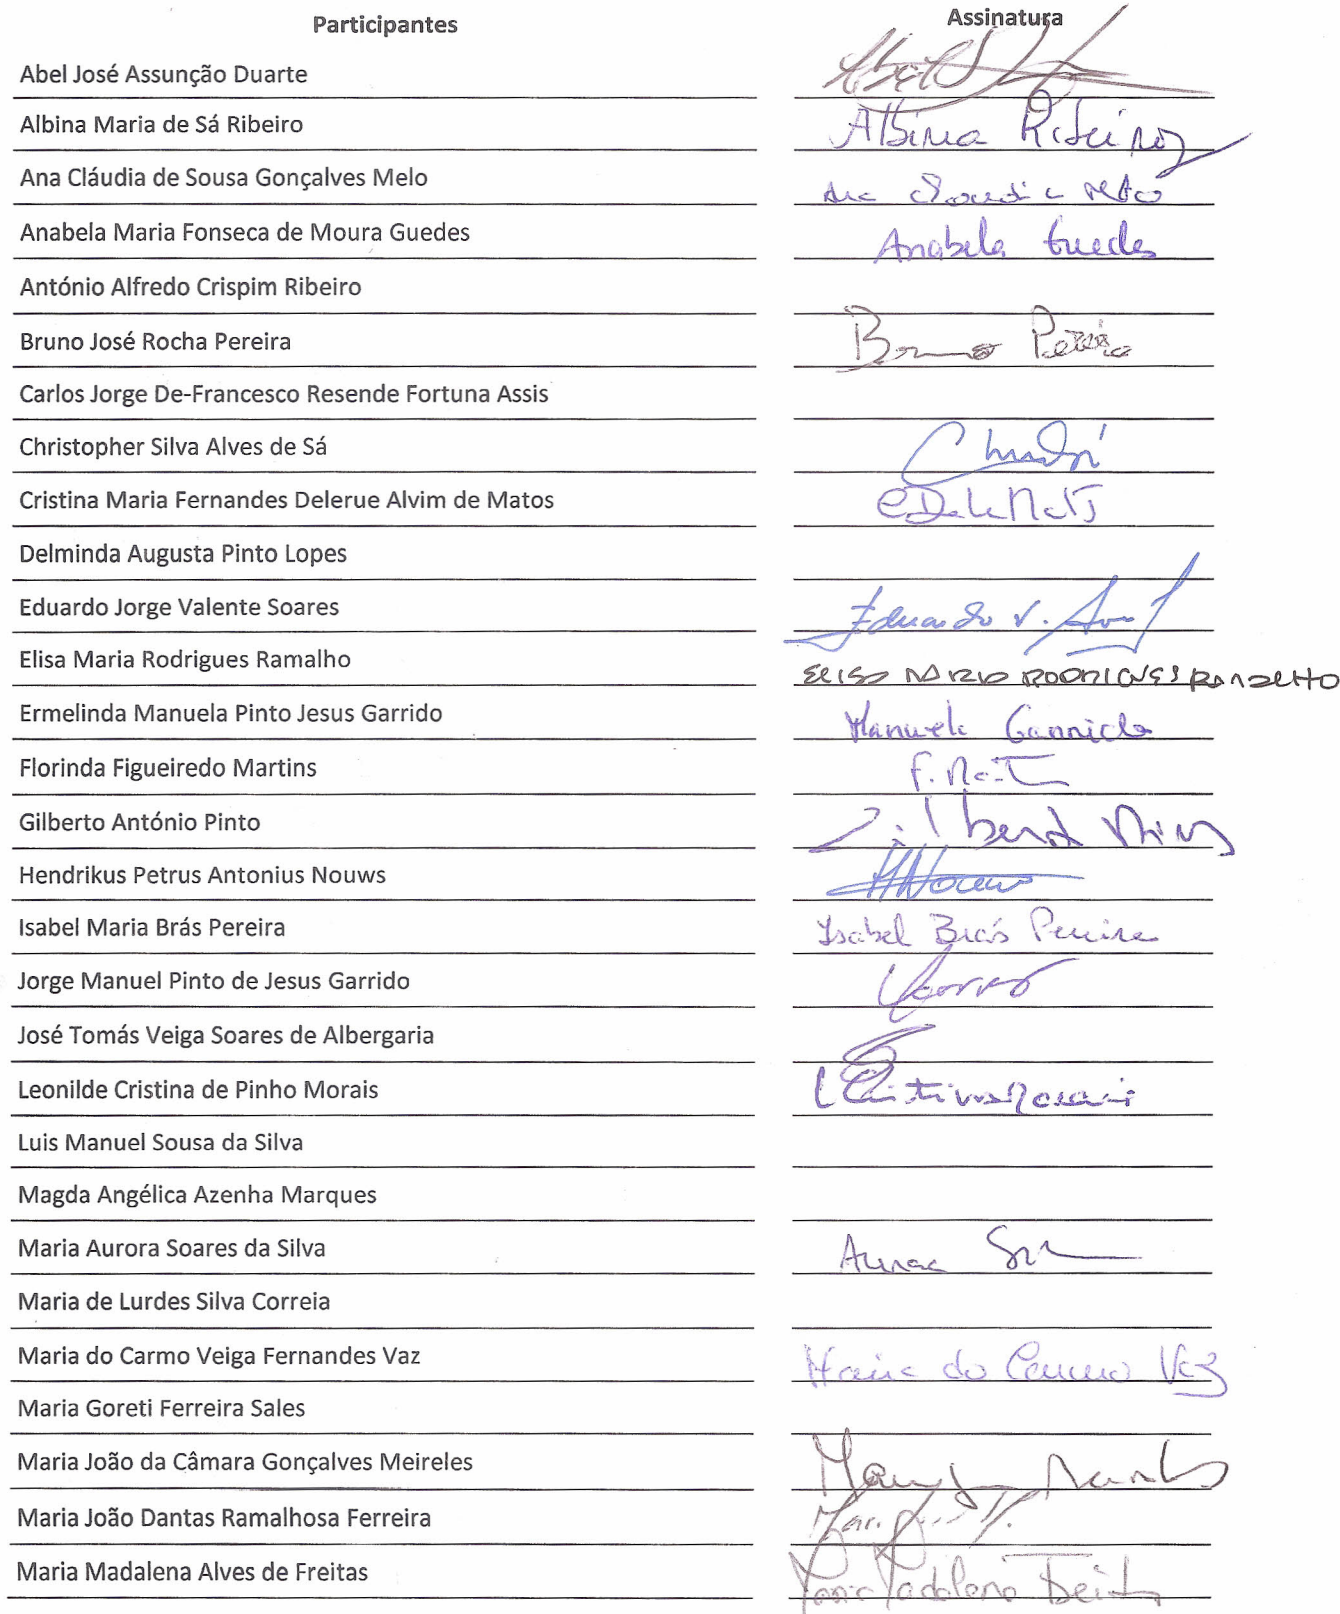 Participantes Assinatura
Abel José Assunção Duarte
Albina Maria de Sá Ribeiro Albina Ribeiro
Ana Cláudia de Sousa Gonçalves Melo Ana Claudia Melo
Anabela Maria Fonseca de Moura Guedes Anabela Guedes
António Alfredo Crispim Ribeiro
Bruno José Rocha Pereira Bruno Pereira
Carlos Jorge De-Francesco Resende Fortuna Assis
Christopher Silva Alves de Sá
Cristina Maria Fernandes Delerue Alvim de Matos
Delminda Augusta Pinto Lopes
Eduardo Jorge Valente Soares Eduardo V.
Elisa Maria Rodrigues Ramalho ELISA MARIA RODRIGUES RAMALHO
Ermelinda Manuela Pinto Jesus Garrido Manuela Garrido
Florinda Figueiredo Martins
Gilberto António Pinto
Hendrikus Petrus Antonius Nouws HNouws
Isabel Maria Brás Pereira Isabel Brás Pereira
Jorge Manuel Pinto de Jesus Garrido
José Tomás Veiga Soares de Albergaria
Leonilde Cristina de Pinho Morais L Cristina Morais
Luis Manuel Sousa da Silva
Magda Angélica Azenha Marques
Maria Aurora Soares da Silva Aurora
Maria de Lurdes Silva Correia
Maria do Carmo Veiga Fernandes Vaz Maria do Carmo Vaz
Maria Goreti Ferreira Sales
Maria João da Câmara Gonçalves Meireles
Maria João Dantas Ramalhosa Ferreira
Maria Madalena Alves de Freitas Maria Madalena Freitas